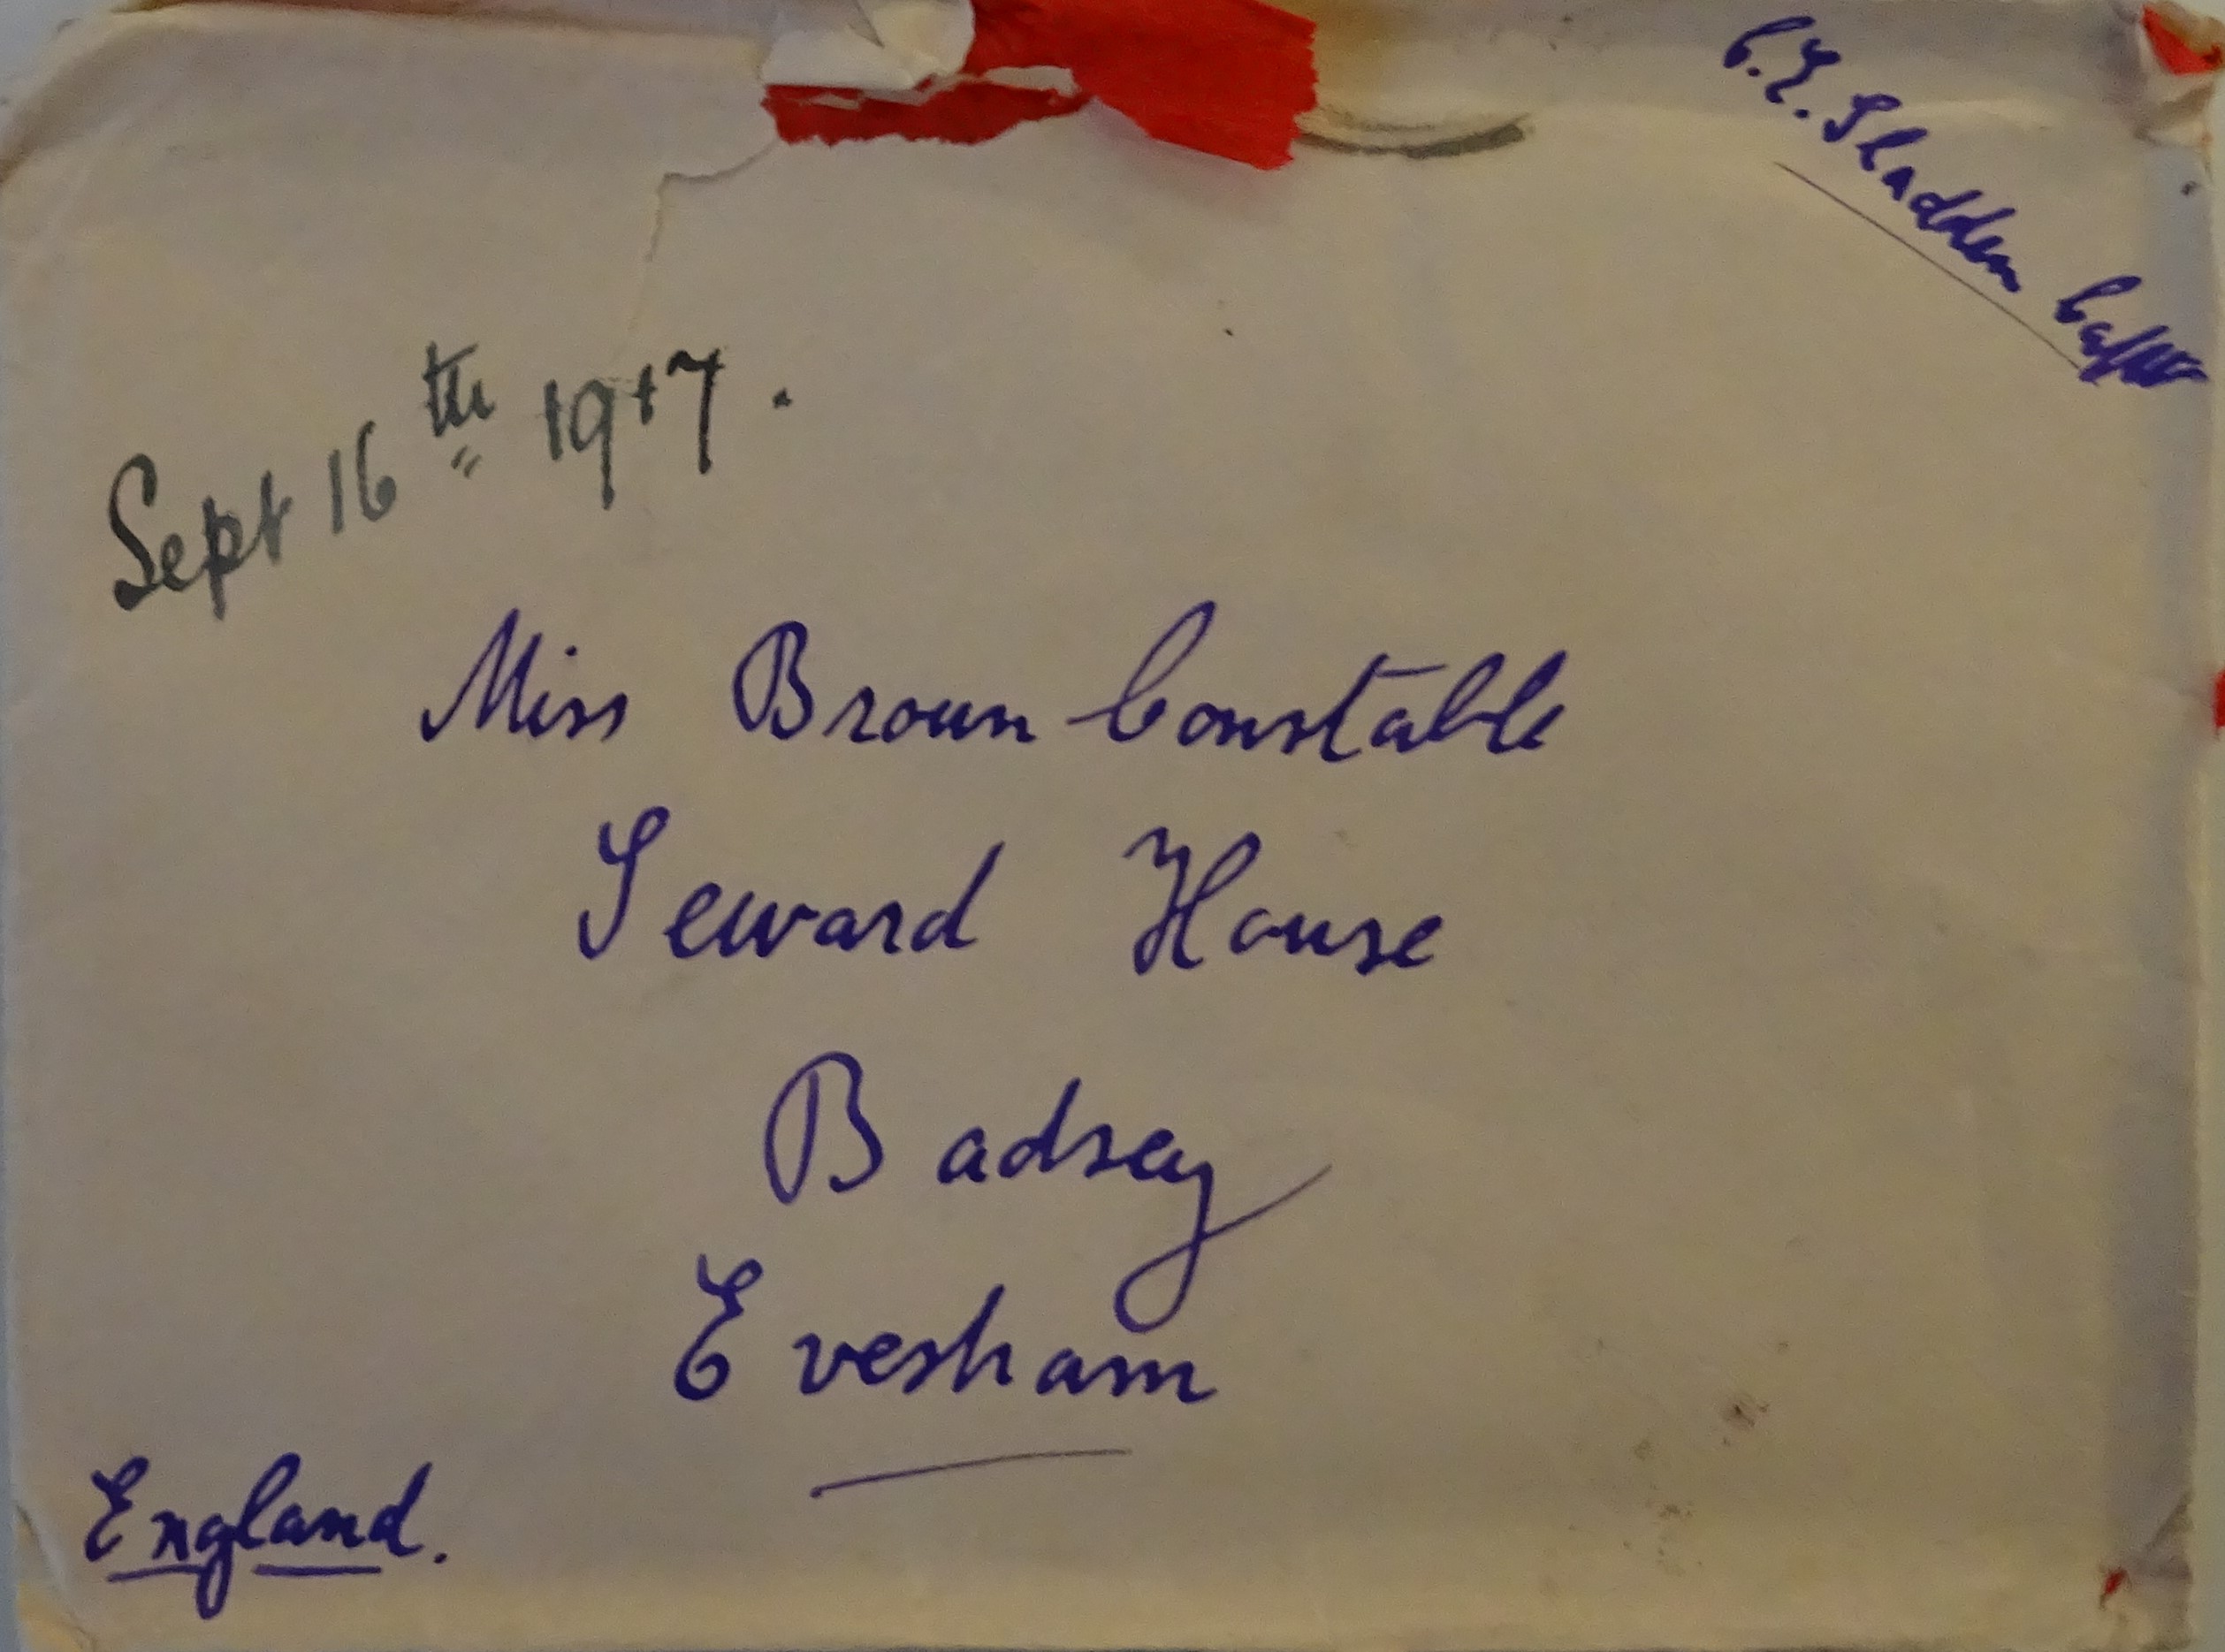 C.E. Sladden Capt
Sept 16th 1917.
Miss Broun Constable
Seward House
Badsey
Evesham
England.